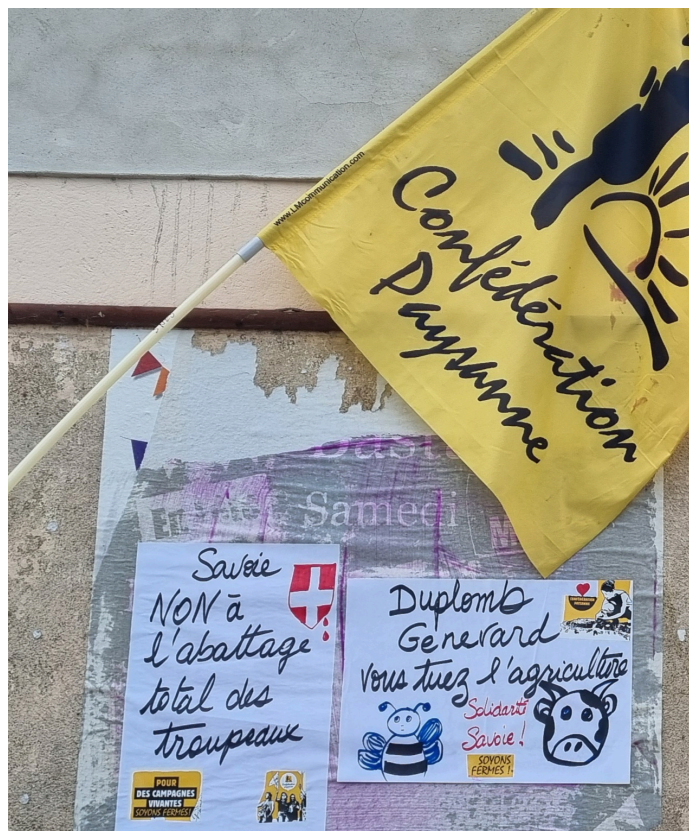 www.LMcommunication.com
Confédération
Paysanne
Samedi
Savoie
NON à
l'abattage
total des
troupeaux
POUR
DES CAMPAGNES
VIVANTES
SOYONS FERMES!
Duplomb
Genevard
vous tuez l'agriculture
Solidarité
Savoie !
SOYONS
FERMES !